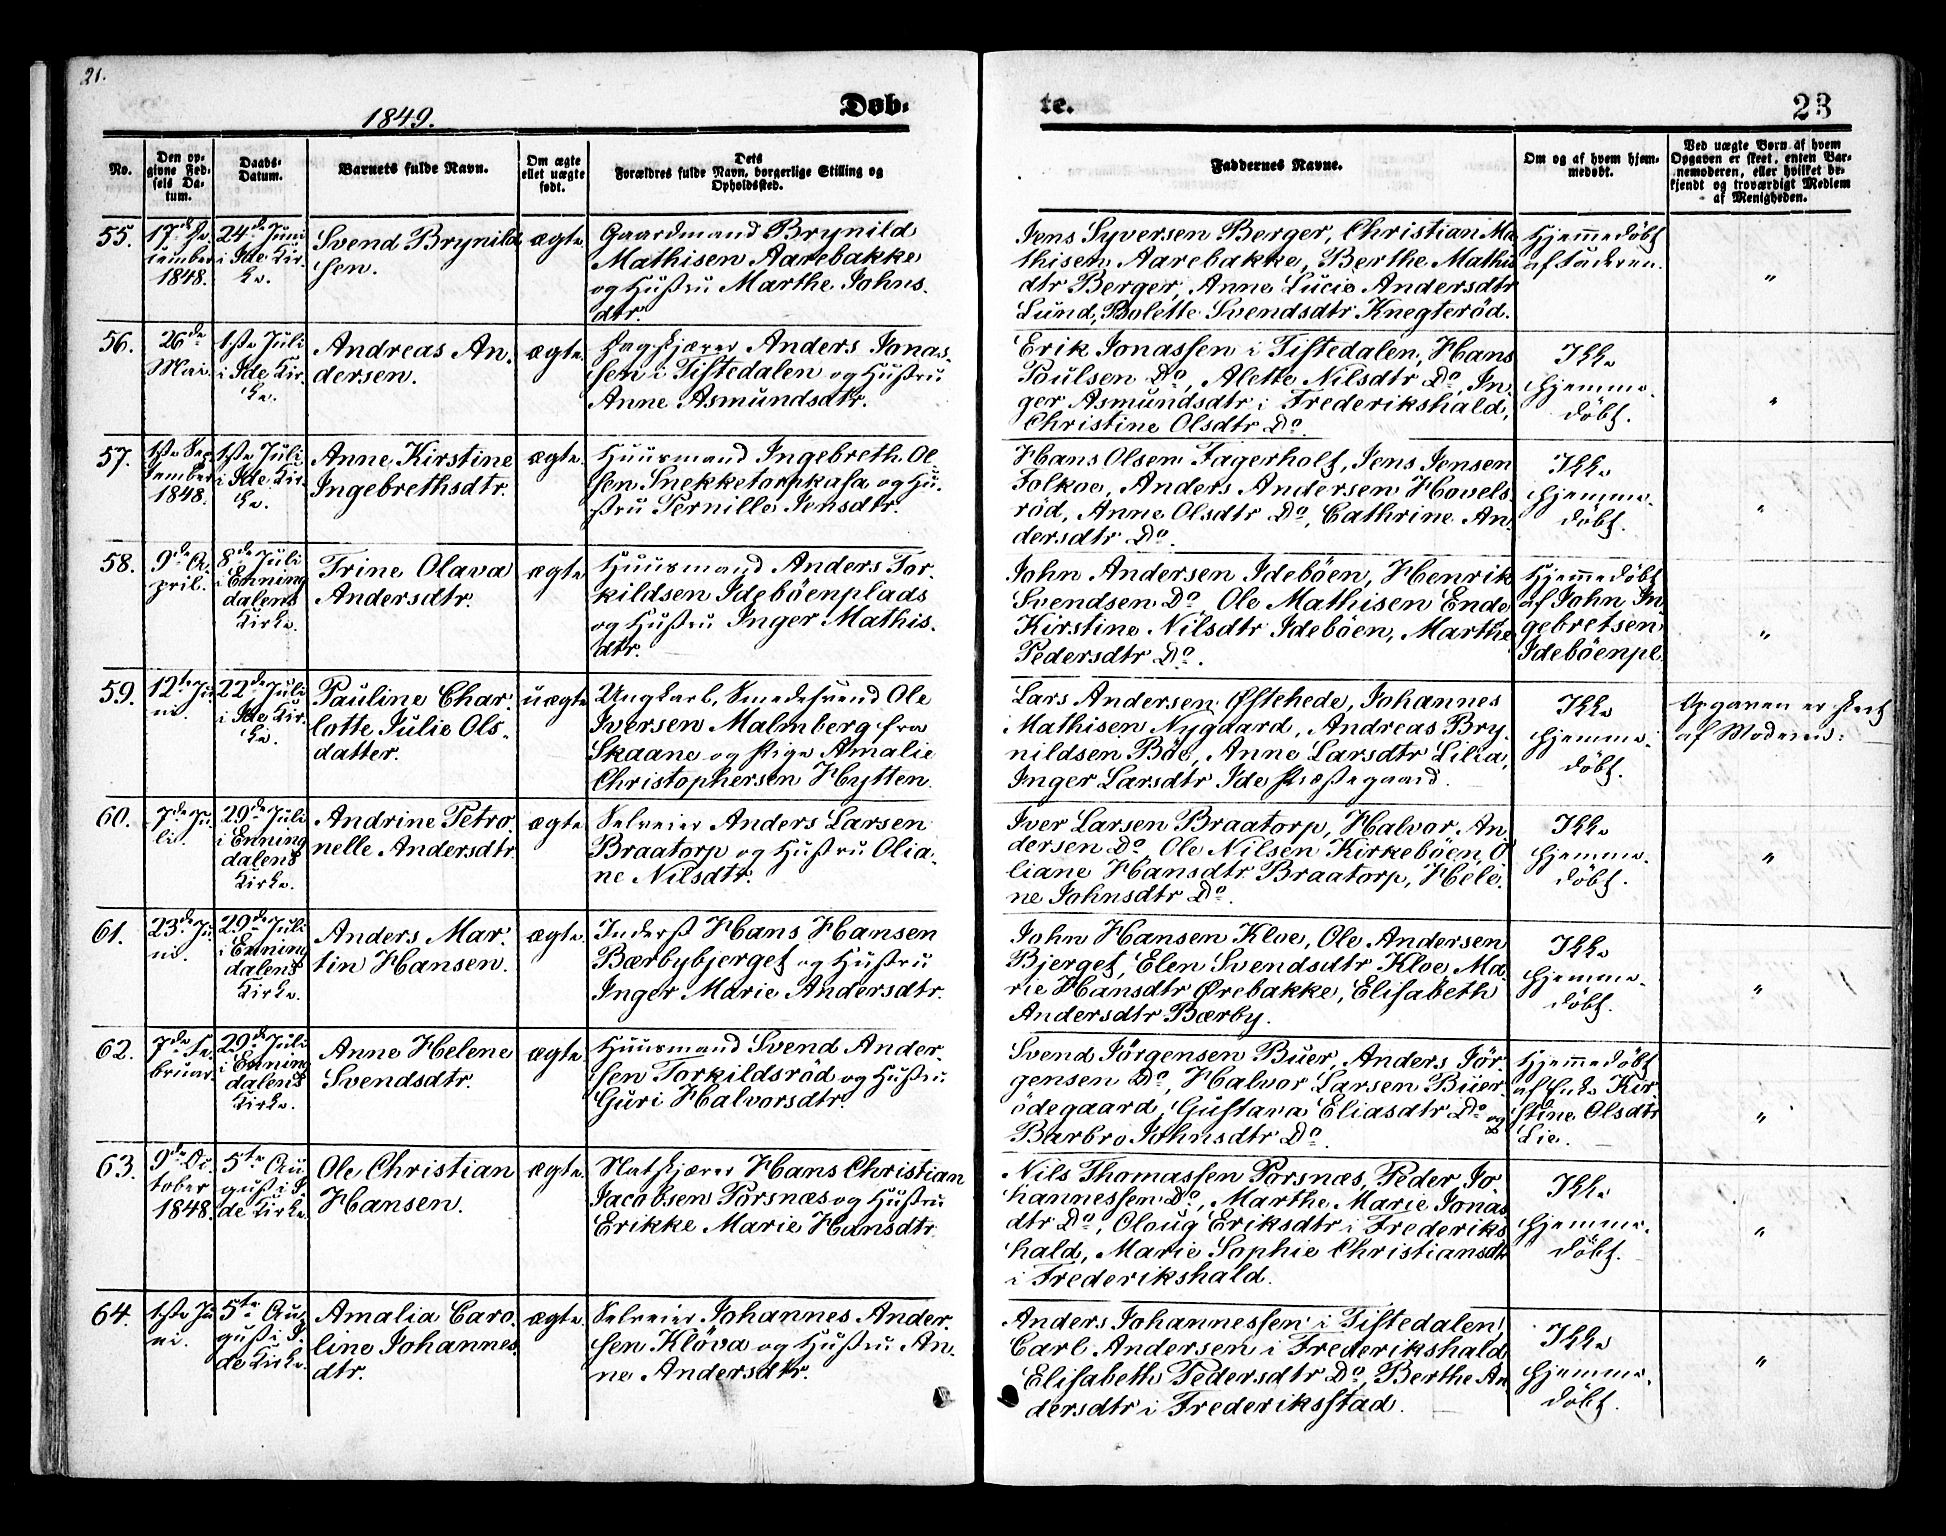 21.
1849.
Døb-
te.
23
No.
Den op-
givne Fød-
sels Da-
tum.
Daabs-
Datum.
Barnets fulde Navn.
Om ægte
ellet uægte
født.
Dets
Forældres fulde Navn, borgerlige Stilling og
Opholdssted.
Faddernes Navne.
Om og af hvem hjem-
medøbt.
Ved uægte Børn af hvem
Opgaven er skeet, enten Bar-
nemoderen, eller hvilket be-
kjendt og troværdigt Medlem
af Menigheden.
55.
17de Se
tember
1848.
24de Juni
i Ide Kir-
ke.
Svend Brynild
sen.
ægte
Gaardmand Brynild
Mathisen Aarebakke
og Hustru Marthe Johns.
dtr.
Jens Syversen Berger, Christian Ma
thisen Aarebakke, Berthe Mathis
dtr Berger, Anne Lucie Andersdtr
Lund, Bolette Svendsdtr Knegteröd.
Hjemmedöbt
af Faderen.
"
56.
26de
Mai.
1ste Juli
i Ide Kir-
ke.
Andreas An-
dersen.
ægte.
Sagskjærer Anders Jonas-
sen i Tistedalen og Hustru
Anne Asmundsdtr.
Erik Jonassen i Tistedalen, Hans
Poulsen Do, Alette Nilsdtr Do, In
ger Asmundsdtr i Frederikshald,
Christine Olsdtr Do.
Ikke
hjemme-
döbt.
"
57.
1ste Sep
tember
1848.
1ste Juli
i Ide Kir-
ke.
Anne Kirstine
Ingebrethsdtr.
ægte.
Huusmand Ingebreth Ol-
sen Snekketorpkasa og Hu-
stru Pernille Jensdtr.
Hans Olsen Fagerholt, Jens Jensen
Folkoe, Anders Andersen Hovels
röd, Anne Olsdtr Do, Cathrine An-
dersdtr Do.
Ikke
hjemme-
döbt.
"
58.
9de A-
pril.
8de Juli
i Enning
dalens
Kirke.
Trine Olava
Andersdtr.
ægte
Huusmand Anders Tor-
kildsen Ideböenplads
og Hustru Inger Mathis-
dtr.
John Andersen Ideböen, Henrik
Svendsen Do, Ole Mathisen Ende
Kirstine Nilsdtr Ideböen, Marthe
Pedersdtr Do.
Hjemmedöbt
af John In-
gebretsen
Ideböenpl.
"
59.
12te Ju
ni.
22de Juli
i Ide Kir-
ke.
Pauline Char-
lotte Julie Ols-
datter.
uægte
Ungkarl, Smedesvend Ole
Iversen Malmberg fra
Skaane og Pige Amalie
Christophersen Hytten.
Lars Andersen Østehede, Johannes
Mathisen Nygaard, Andreas Bry-
nildsen Böe, Anne Larsdtr Lilia,
Inger Larsdtr Ide Præstegaard.
Ikke
hjemme-
döbt.
Opgaven er skeet
af Moderen.
60.
7de Ju-
li.
29de Juli
i Enning
dalens
Kirke.
Andrine Petro-
nelle Andersdtr
ægte
Selveier Anders Larsen
Braatorp og Hustru Olia-
ne Nilsdtr.
Iver Larsen Braatorp, Halvor An
dersen Do, Ole Nilsen Kirkeböen, O
liane Hansdtr Braatorp, Hele-
ne Johnsdtr Do.
Ikke
hjemme-
döbt.
"
61.
23de Ju
ni.
29de Juli
i Enning
dalens
Kirke.
Anders Mar-
tin Hansen.
ægte.
Inderst Hans Hansen
Bærbybjerget og Hustru
Inger Marie Andersdtr.
John Hansen Kloe, Ole Andersen
Bjerget, Elen Svendsdtr Kloe, Ma-
rie Hansdtr Ørebakke, Elisabeth
Andersdtr Bærby.
Ikke
hjemme-
döbt.
"
62.
7de Fe
bruar.
29de Juli
i Enning
dalens
Kirke.
Anne Helene
Svendsdtr.
ægte.
Huusmand Svend Ander-
sen Torkildsröd og Hustru
Guri Halvorsdtr.
Svend Jörgensen Buer, Anders Jör-
gensen Do, Halvor Larsen Buer
ödegaard, Gustava Eliasdtr Do og
Barbro Johnsdtr Do.
Hjemmedöbt
af Enke Kir-
stine Olsdtr
Lie.
"
63.
9de Oc
tober
1848.
5te Au
gust i I-
de Kirke.
Ole Christian
Hansen.
ægte.
Natskjærer Hans Christian
Jacobsen Torsnæs og Hustru
Erikke Marie Hansdtr
Nils Thomassen Torsnæs, Peder Jo
hannessen Do, Marthe Marie Jonas
dtr Do, Oloug Eriksdtr i Frederiks
hald, Marie Sophie Christiansdtr
i Frederikshald.
Ikke
hjemme-
döbt.
"
64.
1ste Ju
ni.
5te Au-
gust i I-
de Kirke.
Amalia Caro-
line Johannes
dtr.
ægte.
Selveier Johannes Ander-
sen Klöva og Hustru An-
ne Andersdtr.
Anders Johannessen i Tistedalen,
Carl Andersen i Frederikshald
Elisabeth Pedersdtr Do, Berthe An
dersdtr i Frederiksstad.
Ikke
hjemme-
döbt.
"